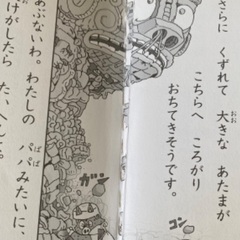 さらに くずれて 大きな あたまが
こちらへ ころがり
おちてきそうです。
ガン
コン
あぶないわ。わたしの パパみたいに、
けがしたら たいへんだ。